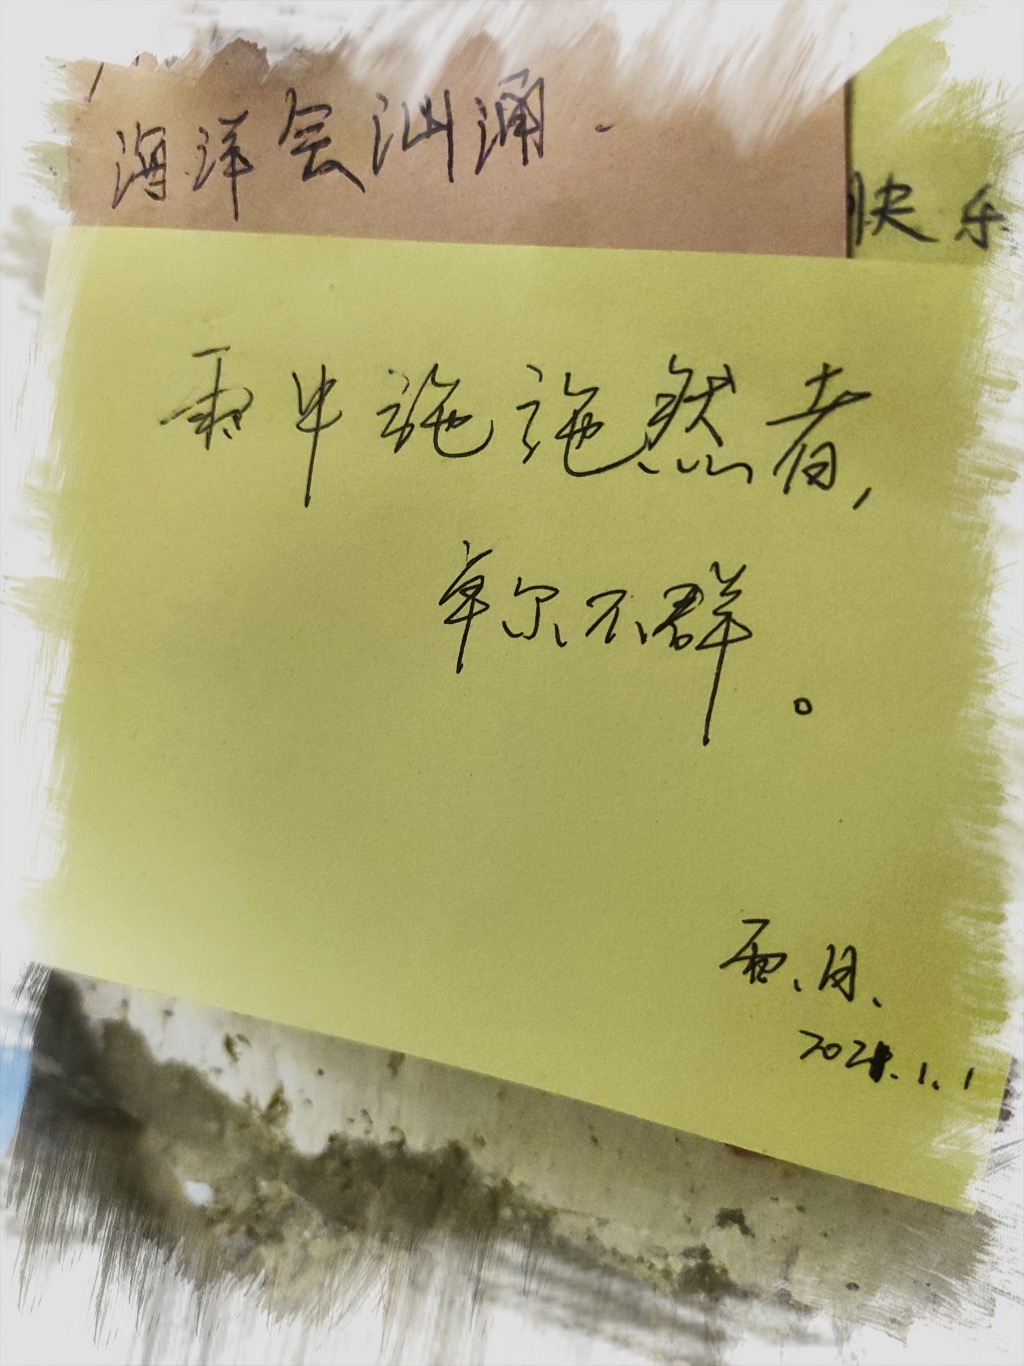 海洋会汹涌.
快乐
雨中施施然者,
卓尔不群。
雨、月、
2021.1.1